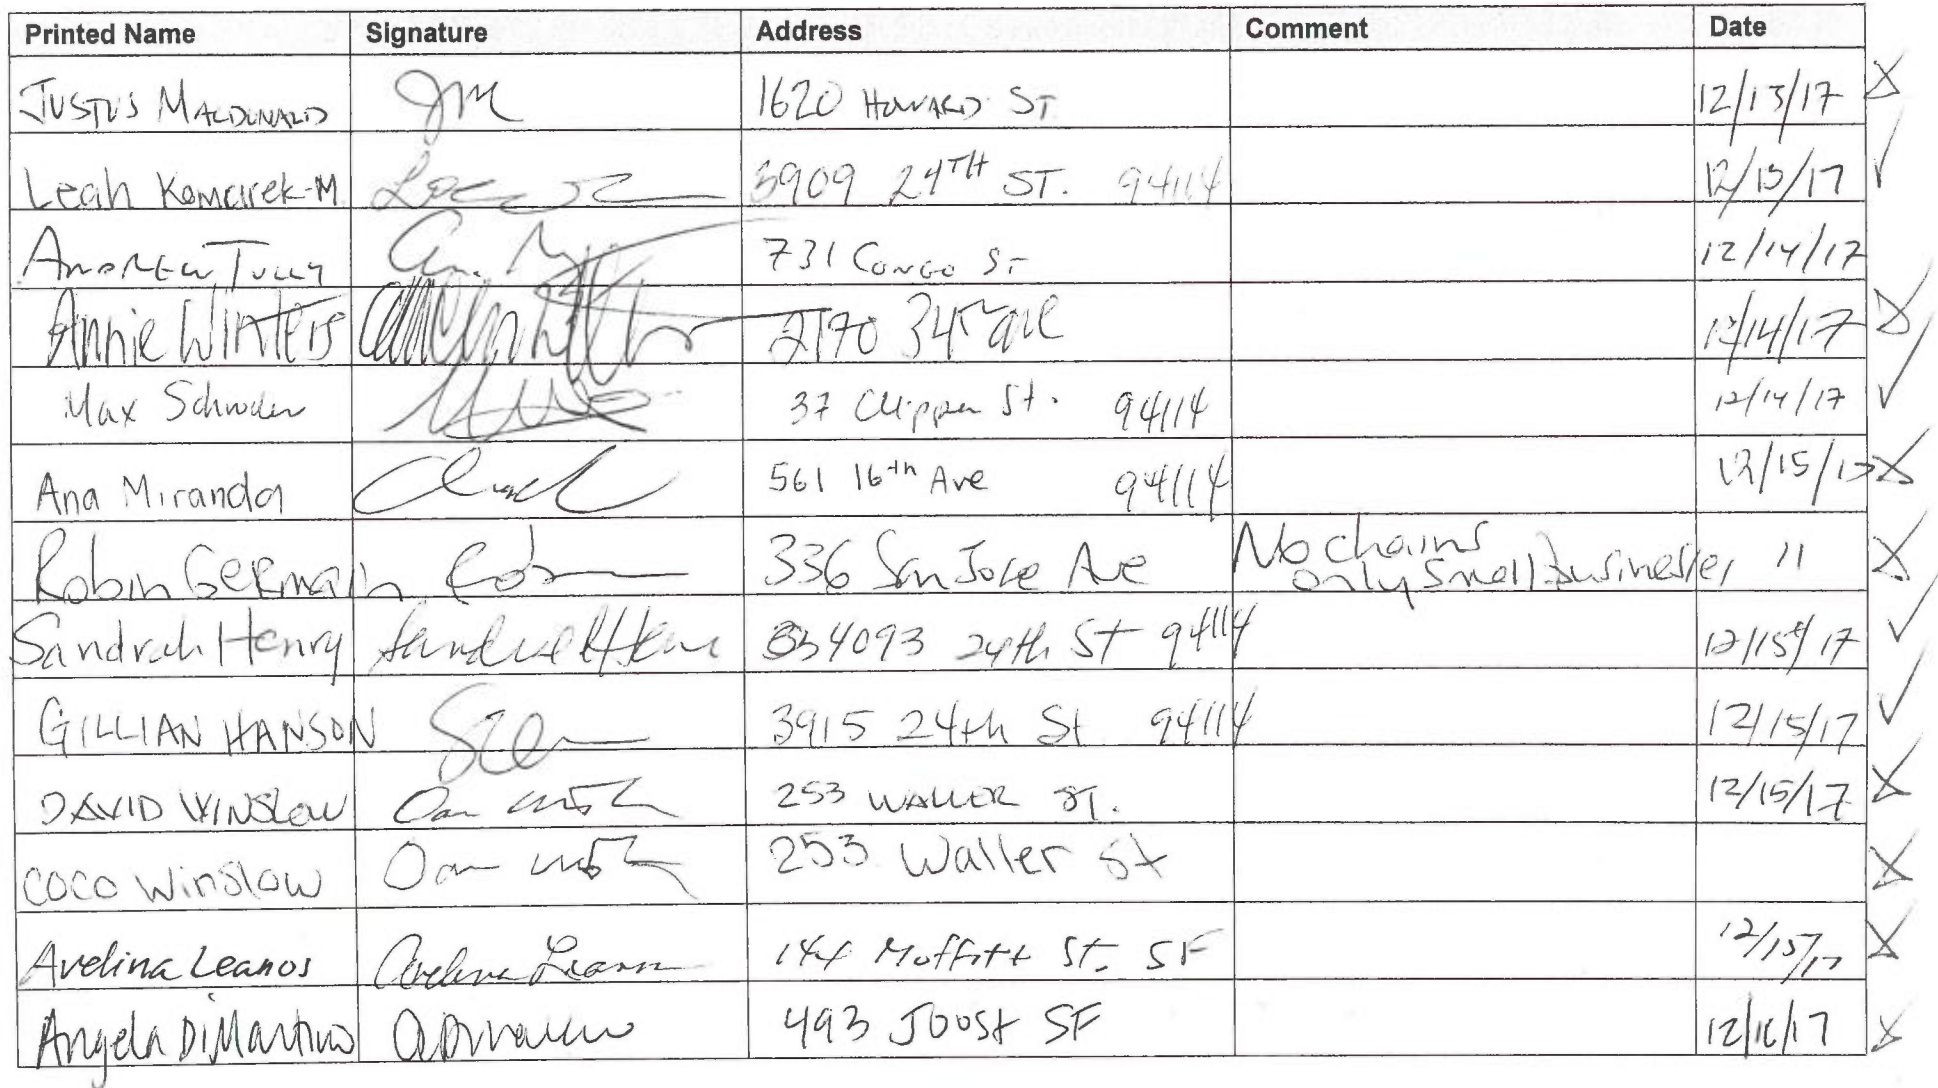 Printed Name Signature Address Comment Date
JUSTUS MACDONALD JM 1620 HOWARD ST 12/13/17
Leah Komarek-M 3909 24TH ST. 94114 12/13/17
ANDREW TULLY 731 CONGO ST 12/14/17
Annie WINTERS 2170 34th ave 12/14/17
Max Schroder 37 Clipper St. 94114 12/14/17
Ana Miranda 561 16th Ave 94114 12/15/17
Robin GERMain 336 San Jose Ave No chains
only small businesses 11
Sandrah Henry 4093 24th St 94114 12/15/17
GILLIAN HANSON 3915 24th St 94114 12/15/17
DAVID WINSLOW 253 WALLER ST. 12/15/17
COCO Winslow 253 Waller St
Avelina Leanos Avelina Leanos 144 Moffitt St. SF 12/15/17
Angela DiMartino 493 Joost SF 12/16/17